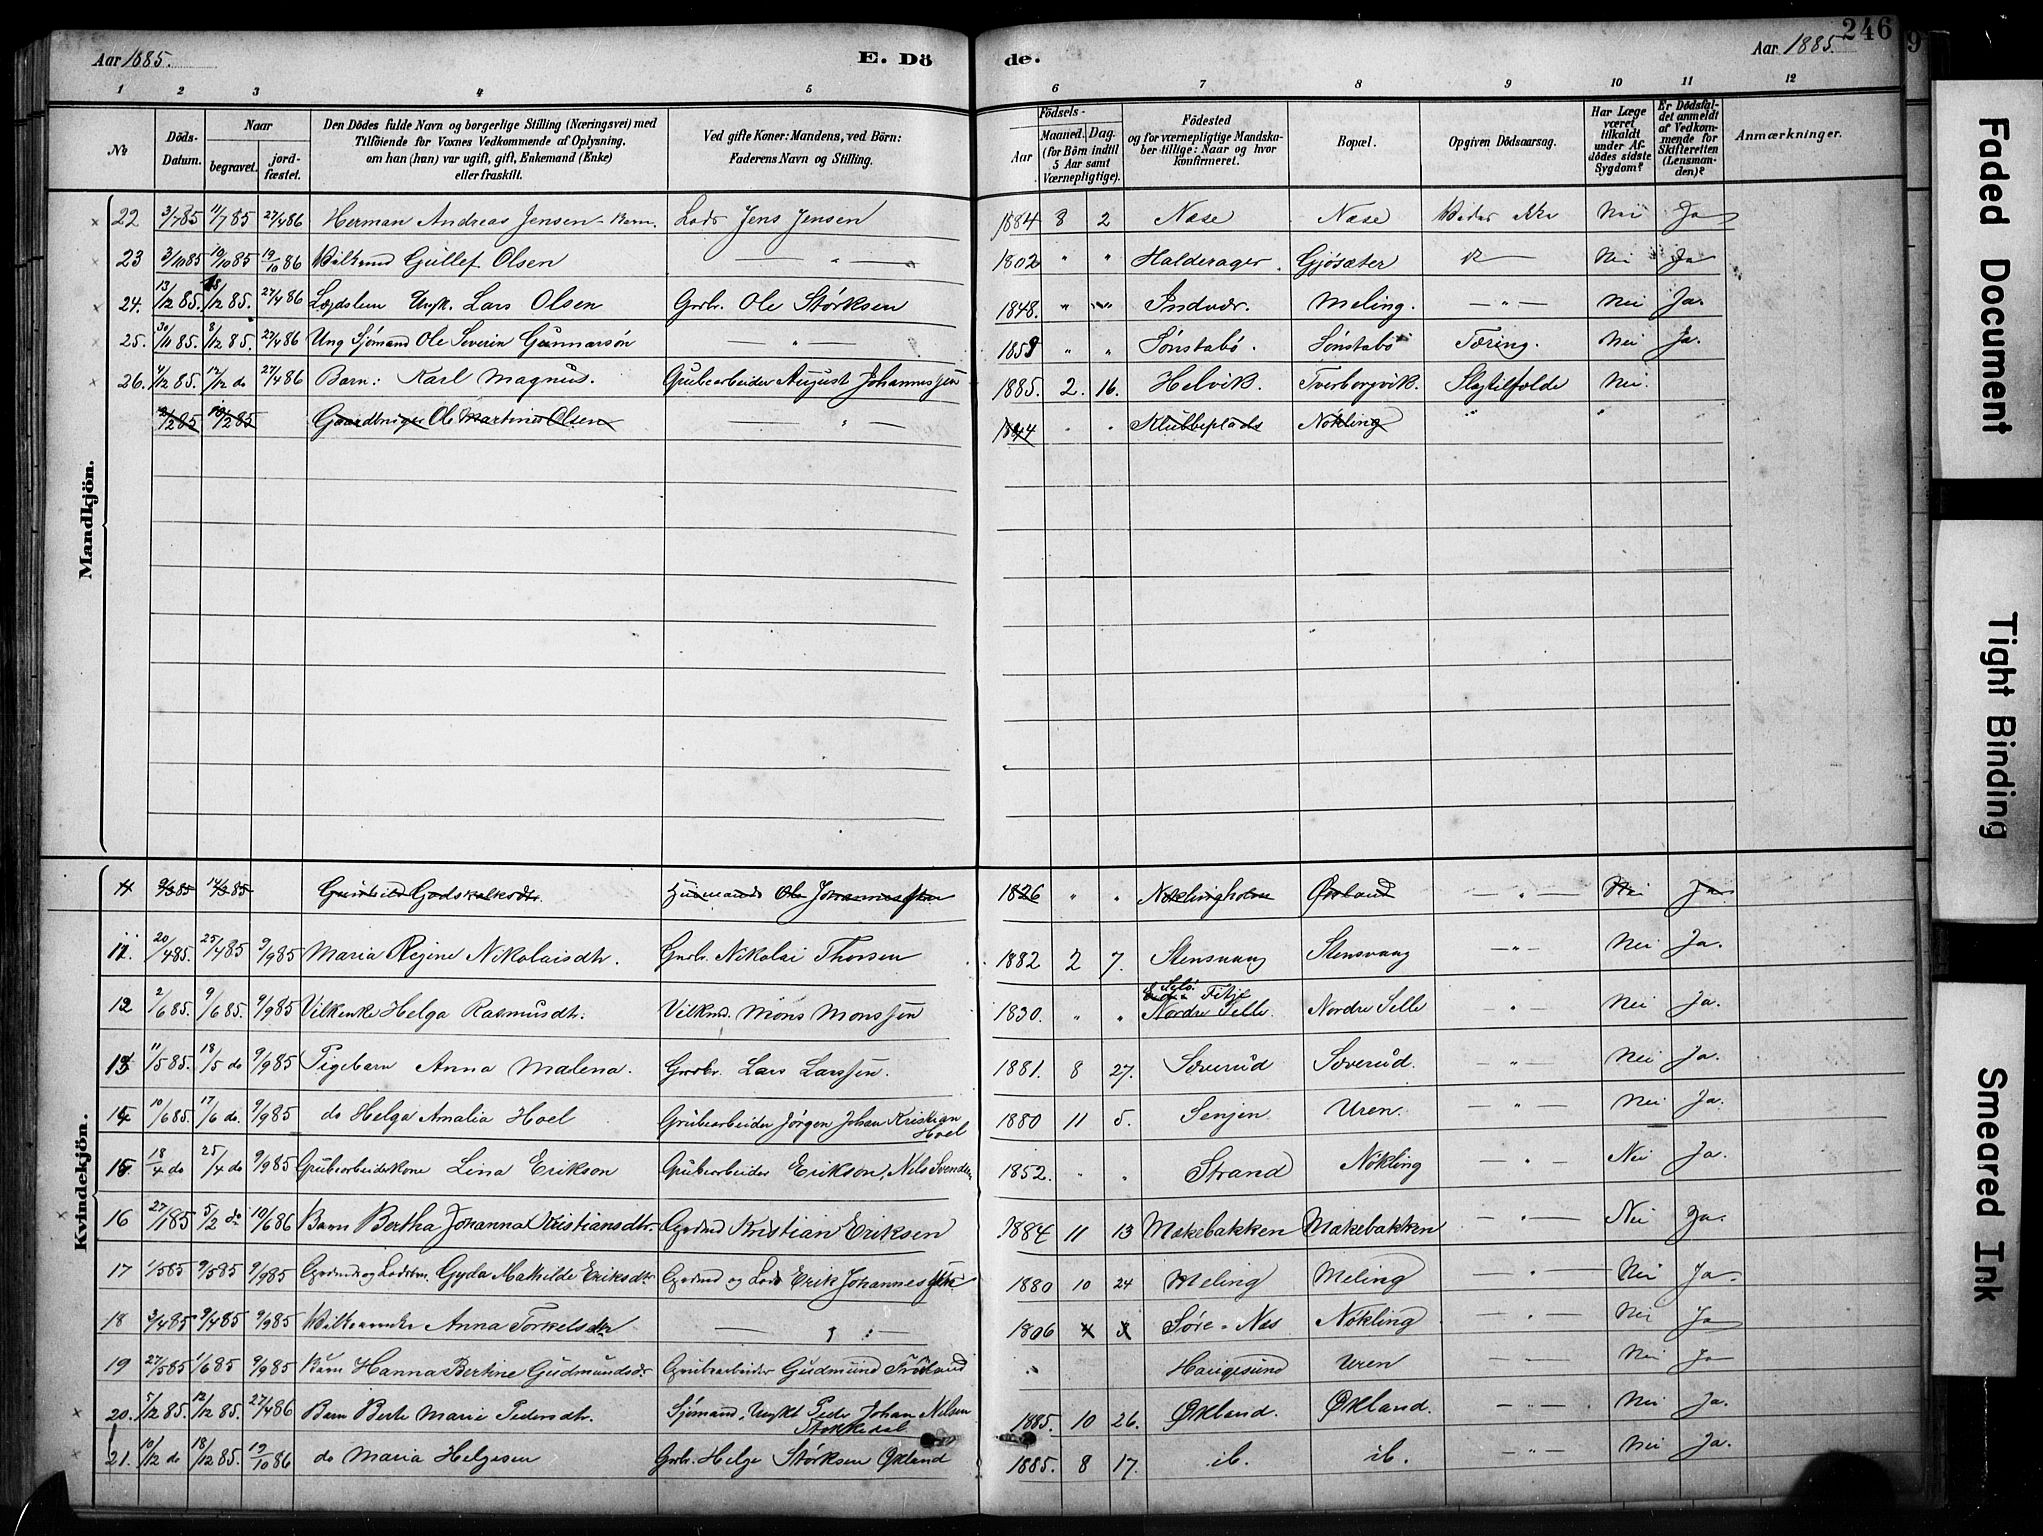 246
9
Aar 1885.
E. Dö
de.
Aar 1885.
1 2 3 4 5 6 7 8 9 10 11 12
№
Döds-
Datum.
Naar
begravet.
jord-
fæstet.
Den Dödes fulde Navn og borgerlige Stilling (Næringsvei) med
Tilföiende for Voxnes Vedkommende af Oplysning,
om han (hun) var ugift, gift, Enkemand (Enke)
eller fraskilt.
Ved gifte Koner: Mandens, ved Börn:
Faderens Navn og Stilling.
Födsels-
Aar
Maaned. Dag.
(for Börn indtil
5 Aar samt
Værnepligtige).
Födested
og for værnepligtige Mandska-
ber tillige: Naar og hvor
konfirmeret.
Bopæl.
Opgiven Dödsaarsag.
Har Læge
været
tilkaldt
under Af-
dödes sidste
Sygdom?
Er Dödsfal-
det anmeldt
af Vedkom-
mende for
Skifteretten
(Lensman-
den)?
Anmærkninger.
Mandkjön.
22 3/7 85 11/7 85 27/4 86 Herman Andreas Jensen - Barn. Lods Jens Jensen 1884 8 2 Næse Næse Vides ikke Nei Ja
23 3/10 85 19/10 85 19/10 86 Gullef Olsen — " — 1802 " " Halderager. Gjösæter Nei Ja
24. 13/12 85. 18/12 85. 27/4 86 Lægdslem Ungk. Lars Olsen Grbr. Ole Størksen 1848. " " Indvær. Meling. — " — Nei Ja.
25. 30/11 85. 8/12 85. 27/4 86 Ung Sjømand Ole Severin Gunnarsön — " — 1859 " " Sønstabö. Sønstabö Tæring. Nei Ja.
26. 4/12 85. 12/12 do 27/4 86 Barn: Karl Magnus. Grubearbeider August Johannessen 1885. 2. 16. Helvik. Tverborgvik. Slagtilfælde Nei.
12/2 85 19/2 85 Gaardbruger Ole Martinus Olsen — " — 1844 " " Klubbeplads Nökling " "
Kvindekjön.
11 9/3 85 14/3 85 Gunhild Godskalksdtr. Huusmand Ole Johannessen 1826 " " Nøklingholm Økland — " — Nei Ja.
11. 20/4 85. 25/4 85 9/9 85 Maria Regine Nikolaisdtr. Grbr. Nikolai Thorsen 1882 2 7. Stensvaag Stensvaag — " — Nei Ja.
12 2/6 85. 9/6 85. 9/9 85 Vilkenke Helga Rasmusdtr. Vilkmd. Mons Monssen 1830. " " Selö Fitje Nordre Selle. Nordre Selle — " — Nei Ja.
13 11/5 85. 18/5 do 9/9 85 Pigebarn Anna Malena. Grdbr. Lars Larssen. 1881. 8 27. Sæverud Sæverud. — " — Nei Ja.
14 10/6 85. 17/6 do. 9/9 85 do Helga Amalia Hoel Grubearbeider Jørgen Johan Kristian
Hoel 1880 11 5. Senjen Uren. — " — Nei Ja.
15. 18/4 do 25/4 do 9/9 85 Grubearbeiderkone Lina Erikson Grubearbeider Erikson, Nels Svenden 1852. " " Strand Nökling — " — Nei Ja.
16 27/1 85 5/2 do 10/6 86 Barn Bertha Johanna Kristiansdtr. Grdmd Kristian Eriksen 1884 11 13 Mækebakken Mækebakken — " — Nei Ja.
17 1/5 85 9/5 85 9/9 85 Grdmds og Lodsbn. Gyda Mathilde Eriksdtr Grdmd og Lods Erik Johannessen 1880 10 24 Meling Meling — " — Nei Ja.
18 3/4 85 9/4 85 9/9 85 Anna Torkelsdtr — " — 1806 4 3 Søre-Næs Nökling — " — Nei Ja
19 27/5 85 1/6 85 9/9 85 Barn Hanna Bertine Gudmundsdr. Grubearbeider Gudmund Fröland Haugesund Uren — " — Nei Ja
20. 5/12 85. 12/12 85. 27/4 86 Barn Berte Marie Pedersdtr. Sjømand, Ungkl Peder Johan Nilsen
Stokkedal 1885. 10 26. Økland. Økland. — " — Nei Ja.
21. 10/12 do 18/12 85. 19/10 86 do Maria Helgesen Grbr. Helge Størksen Økland 1885. 8 17. ib. ib. — " — Nei Ja.
Faded Document
Tight Binding
Smeared Ink